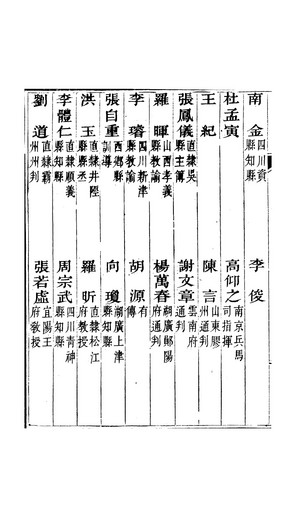 南金 四川資縣知縣
杜孟寅
王紀
張鳳儀 直隸吳縣主簿
羅暉 山西孝義縣教諭
李璿 四川新津縣教諭
張自重 西鄉縣訓導
洪玉 直隸井陘縣縣丞
李體仁 直隸順義縣知縣
劉道 直隸霸州州判
李俊
高仰之 南京兵馬司指揮
陳言 山東膠州通判
謝文章 雲南府通判
楊萬春 湖廣鄖陽府通判
胡源 有傳
向瓊 湖廣上津縣知縣
羅昕 直隸松江府教授
周宗武 四川青神縣知縣
張若虛 宜陽王府教授